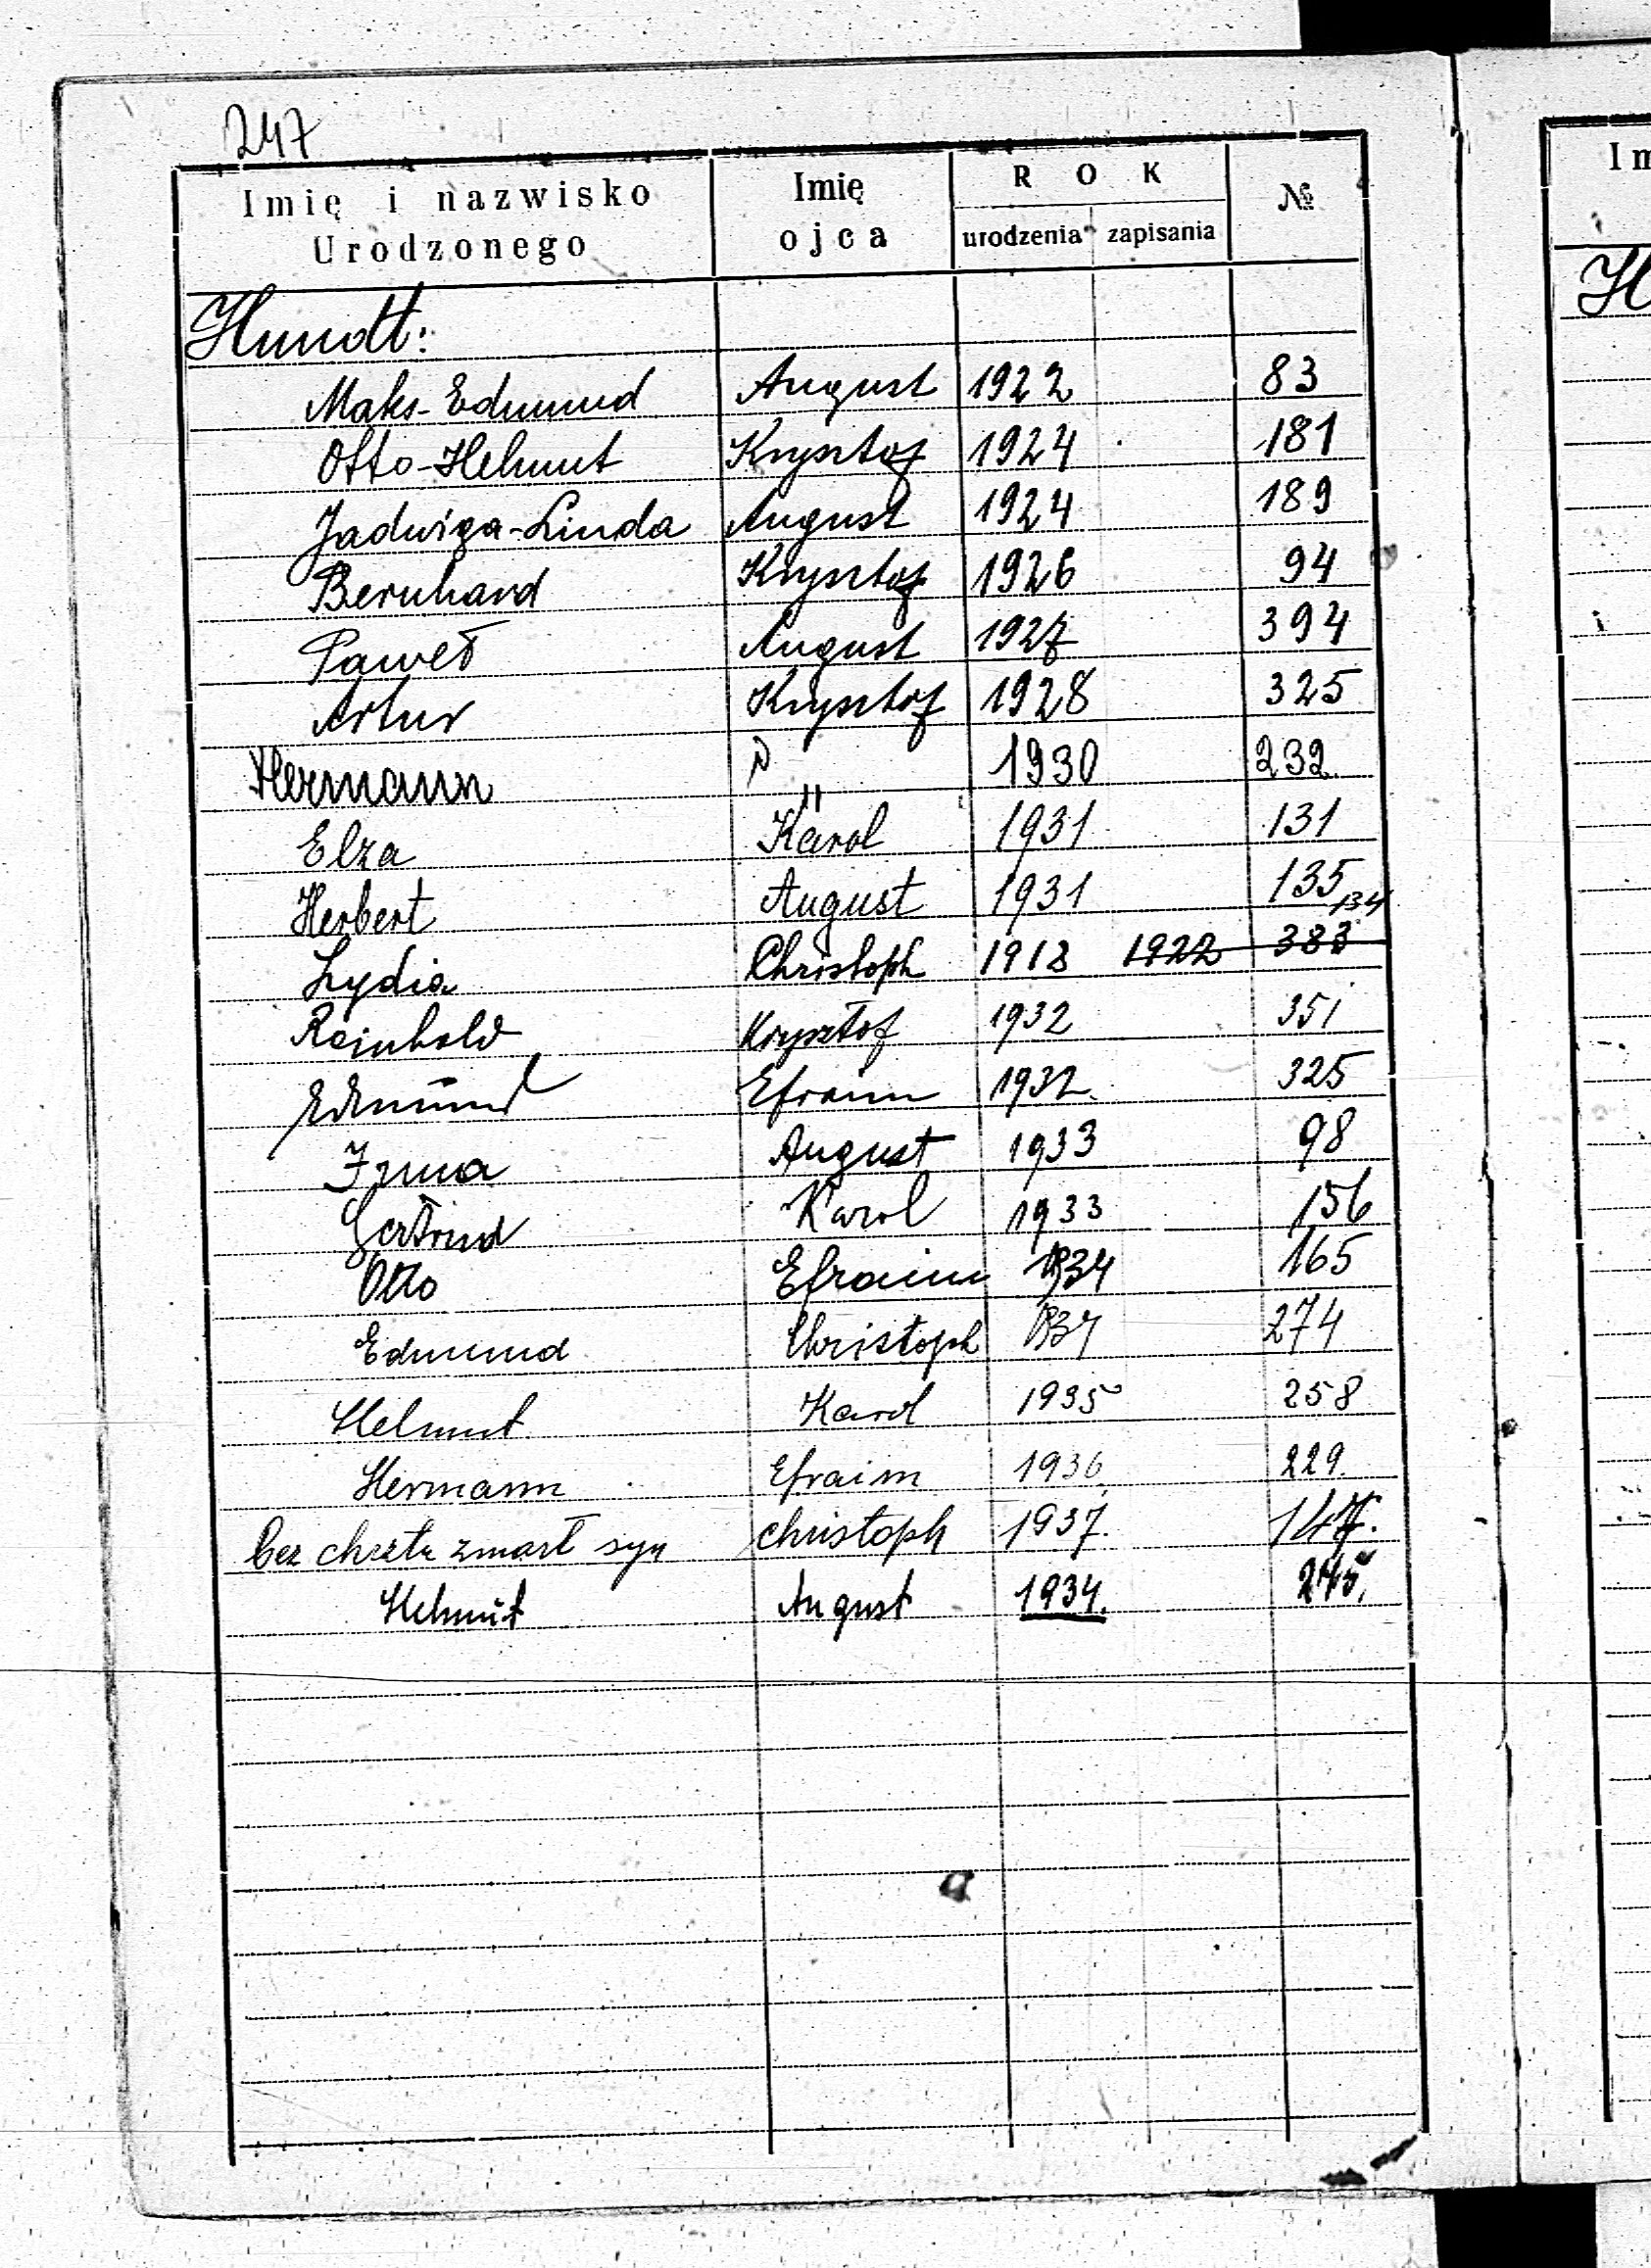 247
Imię i nazwisko Urodzonego Imię ojca ROK urodzenia zapisania №
Hundt:
Maks-Edmund August 1922 83
Otto-Helmut Krysztof 1924 181
Jadwiga-Linda August 1924 189
Bernhard Krysztof 1926 94
Paweł August 1927 394
Artur Krysztof 1928 325
Hermann " 1930 232
Elza Karol 1931 131
Herbert August 1931 135
134
Lydia Christoph 1918 1922 383
Reinhold Krysztof 1932 351
Edmund Efraim 1932 325
Irma August 1933 98
Gertrud Karol 1933 156
Otto Efraim 1934 165
Edmund Christoph 1934 274
Helmut Karol 1935 258
Hermann Efraim 1936 229
bez chrztu zmarł syn Christoph 1937. 147.
Helmut August 1934. 245.
Im
H